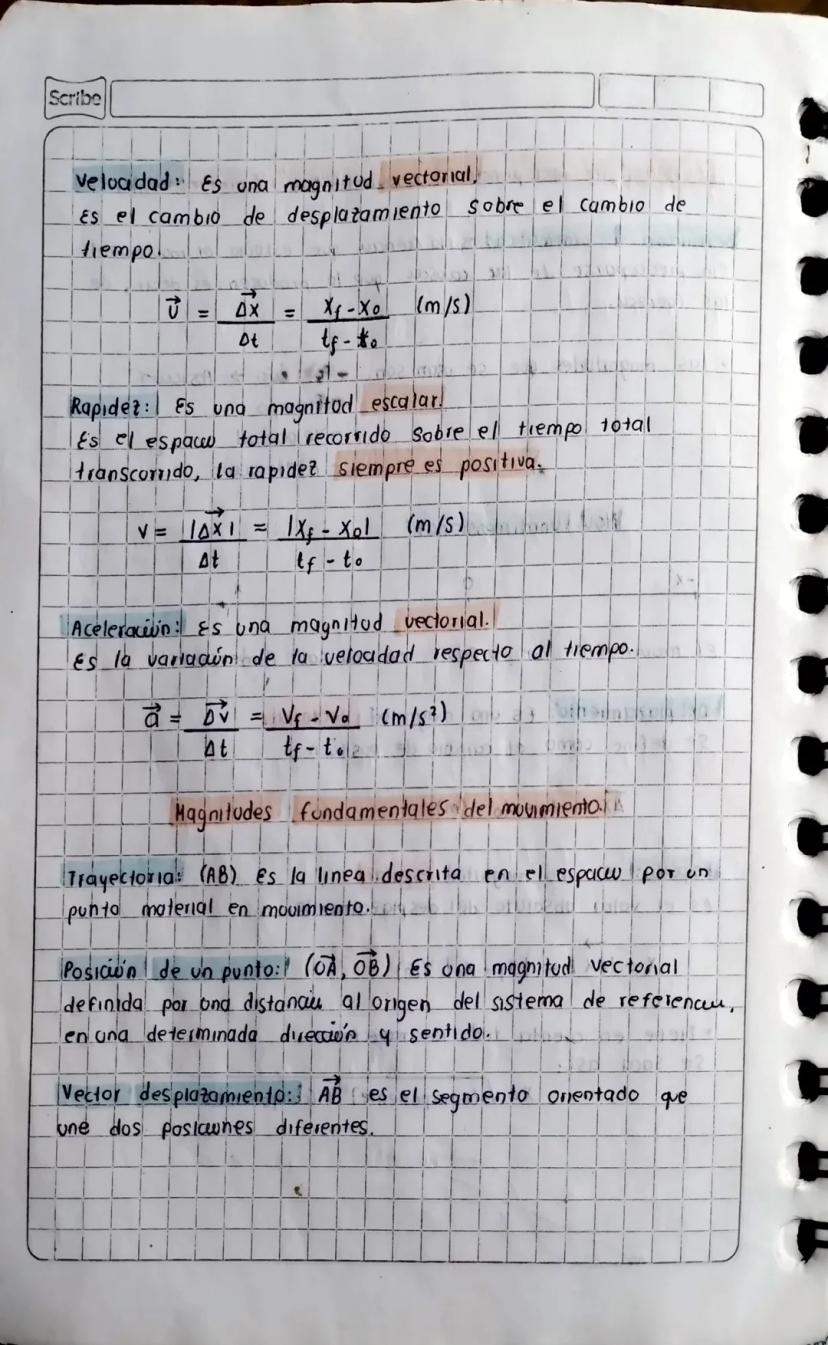 Scribe
Velocidad: Es una magnitud vectorial.
Es el cambio de desplazamiento sobre el cambio de
tiempo.
v⃗ = Δx⃗/Δt = (xf - x0)/(tf - t0) (m/s)
Rapidez: Es una magnitud escalar.
Es el espacio total recorrido sobre el tiempo total
transcorrido, la rapidez siempre es positiva.
v = |Δx⃗|/Δt = |xf - x0|/(tf - t0) (m/s)
Aceleración: Es una magnitud vectorial.
Es la variación de la velocidad respecto al tiempo.
a⃗ = Δv⃗/Δt = (vf - v0)/(tf - t0) (m/s²)
Magnitudes fundamentales del movimiento.
Trayectoria: (AB) Es la linea descrita en el espacio por un
punto material en movimiento.
Posición de un punto: (OA⃗, OB⃗) Es una magnitud vectorial
definida por una distancia al origen del sistema de referencia,
en una determinada dirección y sentido.
Vector desplazamiento: AB⃗ es el segmento orientado que
une dos posiciones diferentes.